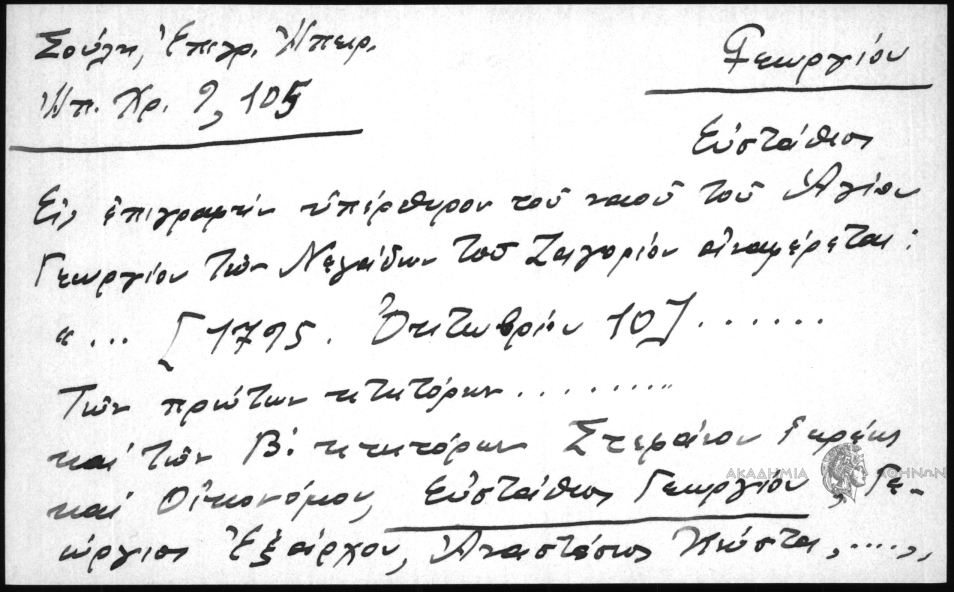 Σούλη, Ἐπιγρ. Ἠπειρ.
Ἠπ. Χρ. 9, 105
Γεωργίου
Εὐστάθιος
Εἰς ἐπιγραφὴν ὑπέρθυρον τοῦ ναοῦ τοῦ Ἁγίου
Γεωργίου τῶν Νεγάδων τοῦ Ζαγορίου ἀναφέρεται:
"... [1795. Ὀκτωβρίου 10].......
Τῶν πρώτων κτητόρων.........
καὶ τῶν Β. κτητόρων Στεφάνου
ΑΚΑΔΗΜΙΑ ΑΘΗΝΩΝ
καὶ Οἰκονόμου, Εὐστάθιος Γεωργίου, Γε-
ώργιος Ἐξάρχου, Ἀναστάσιος Κώστα,.....,,